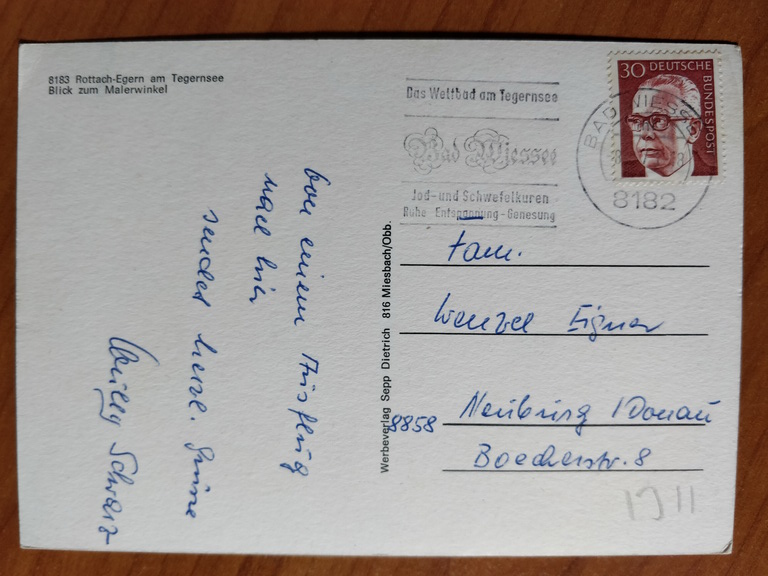 8183 Rottach-Egern am Tegernsee
Blick zum Malerwinkel
Von einem Ausflug
nach hier
sendet herzl. Grüsse
Willy Schwarz
Werbeverlag Sepp Dietrich 816 Miesbach/Obb.
Das Weltbad am Tegernsee
Bad Wiessee
Jod-und Schwefelkuren
Ruhe Entspannung-Genesung
30 DEUTSCHE BUNDESPOST
BAD WIESSEE
8182
Fam.
Wenzel Eigner
8858 Neuburg /Donau